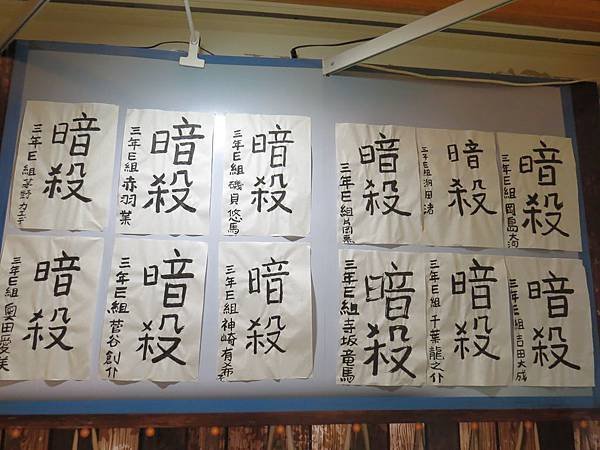 暗殺
三年E組 茅野カエデ
暗殺
三年E組 赤羽業
暗殺
三年E組 磯貝悠馬
暗殺
三年E組
暗殺
三年E組 潮田渚
暗殺
三年E組 岡島大河
暗殺
三年E組 奥田愛美
暗殺
三年E組 菅谷創介
暗殺
三年E組 神崎有希
暗殺
三年E組 寺坂竜馬
暗殺
三年E組 千葉龍之介
暗殺
三年E組 吉田大成